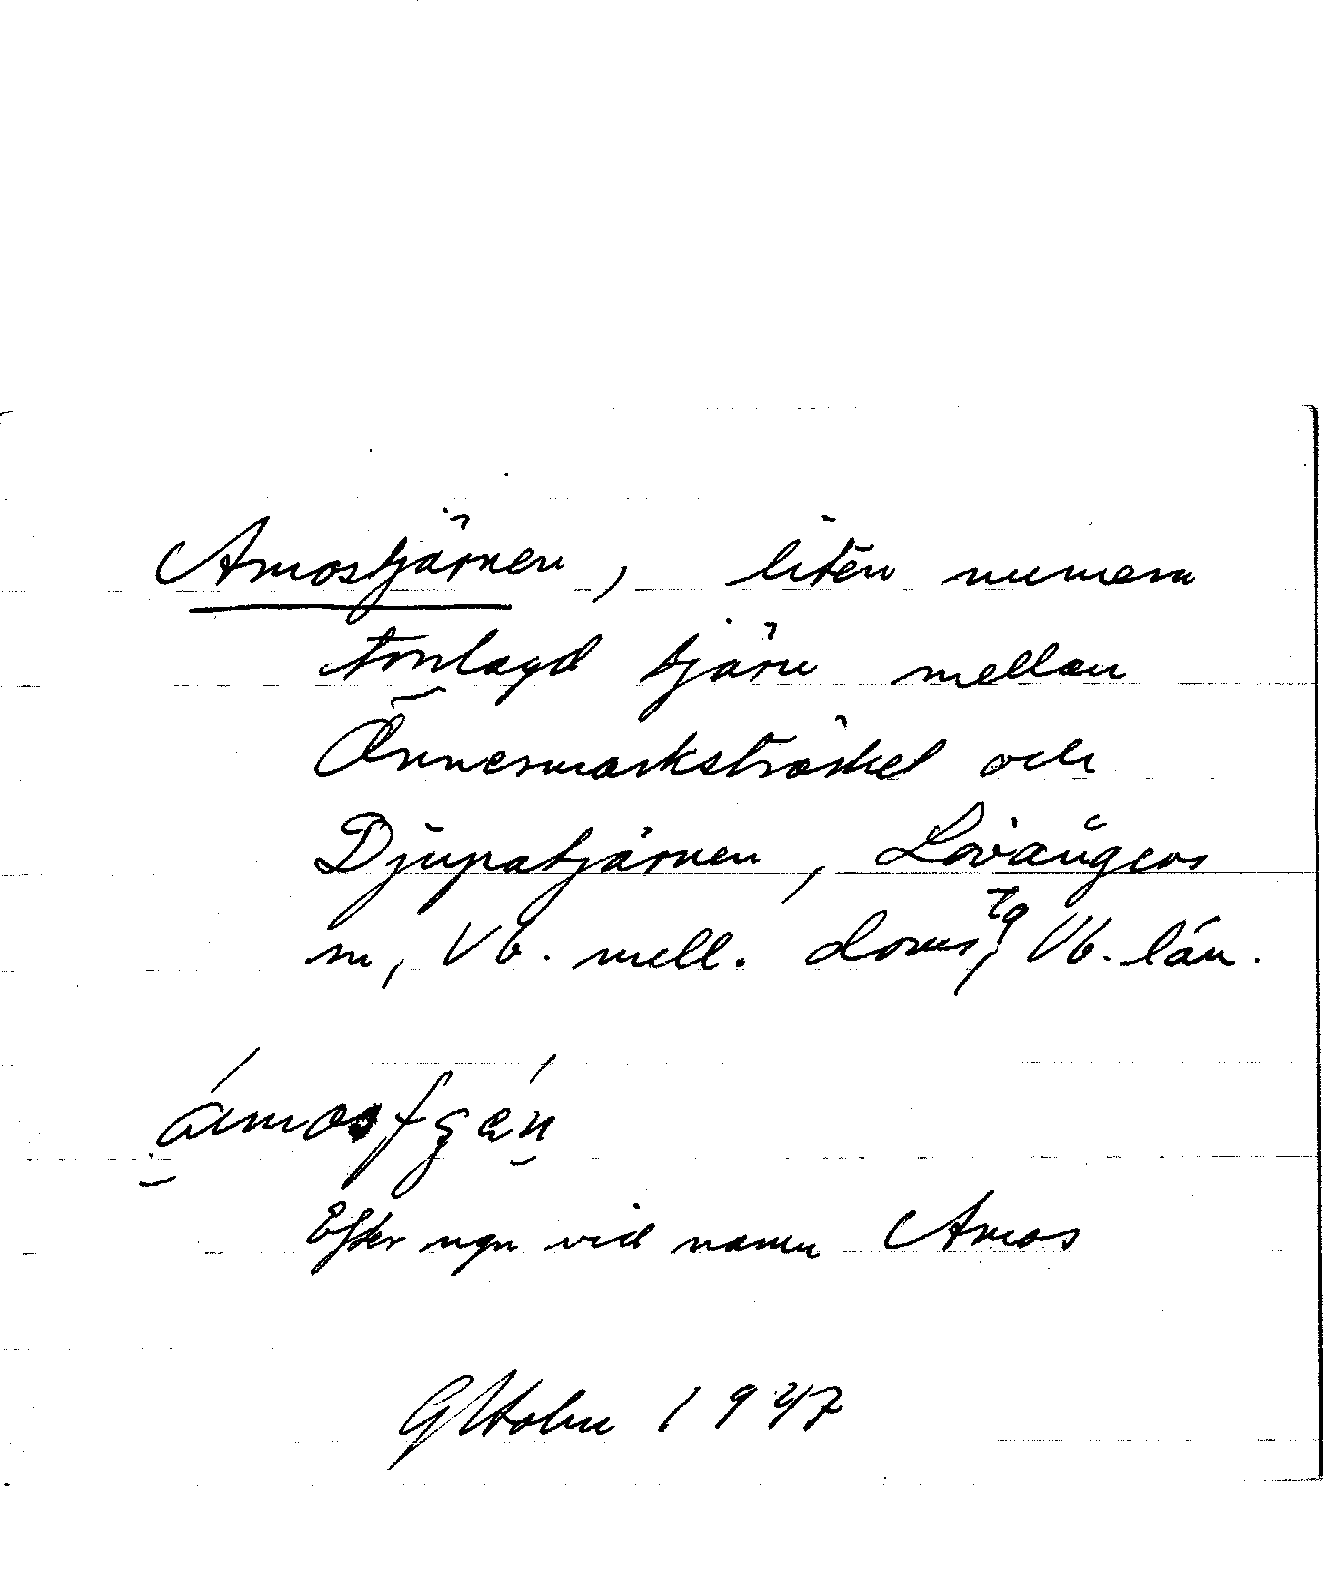 Amostjärnen, liten numera
torrlagd tjärn mellan
Önnesmarksträsket och
Djupatjärnen, Lövångers
sn, Vb. mell. doms:g, Vb. län.
Efter ngn vid namn Amos
GHolm 1947